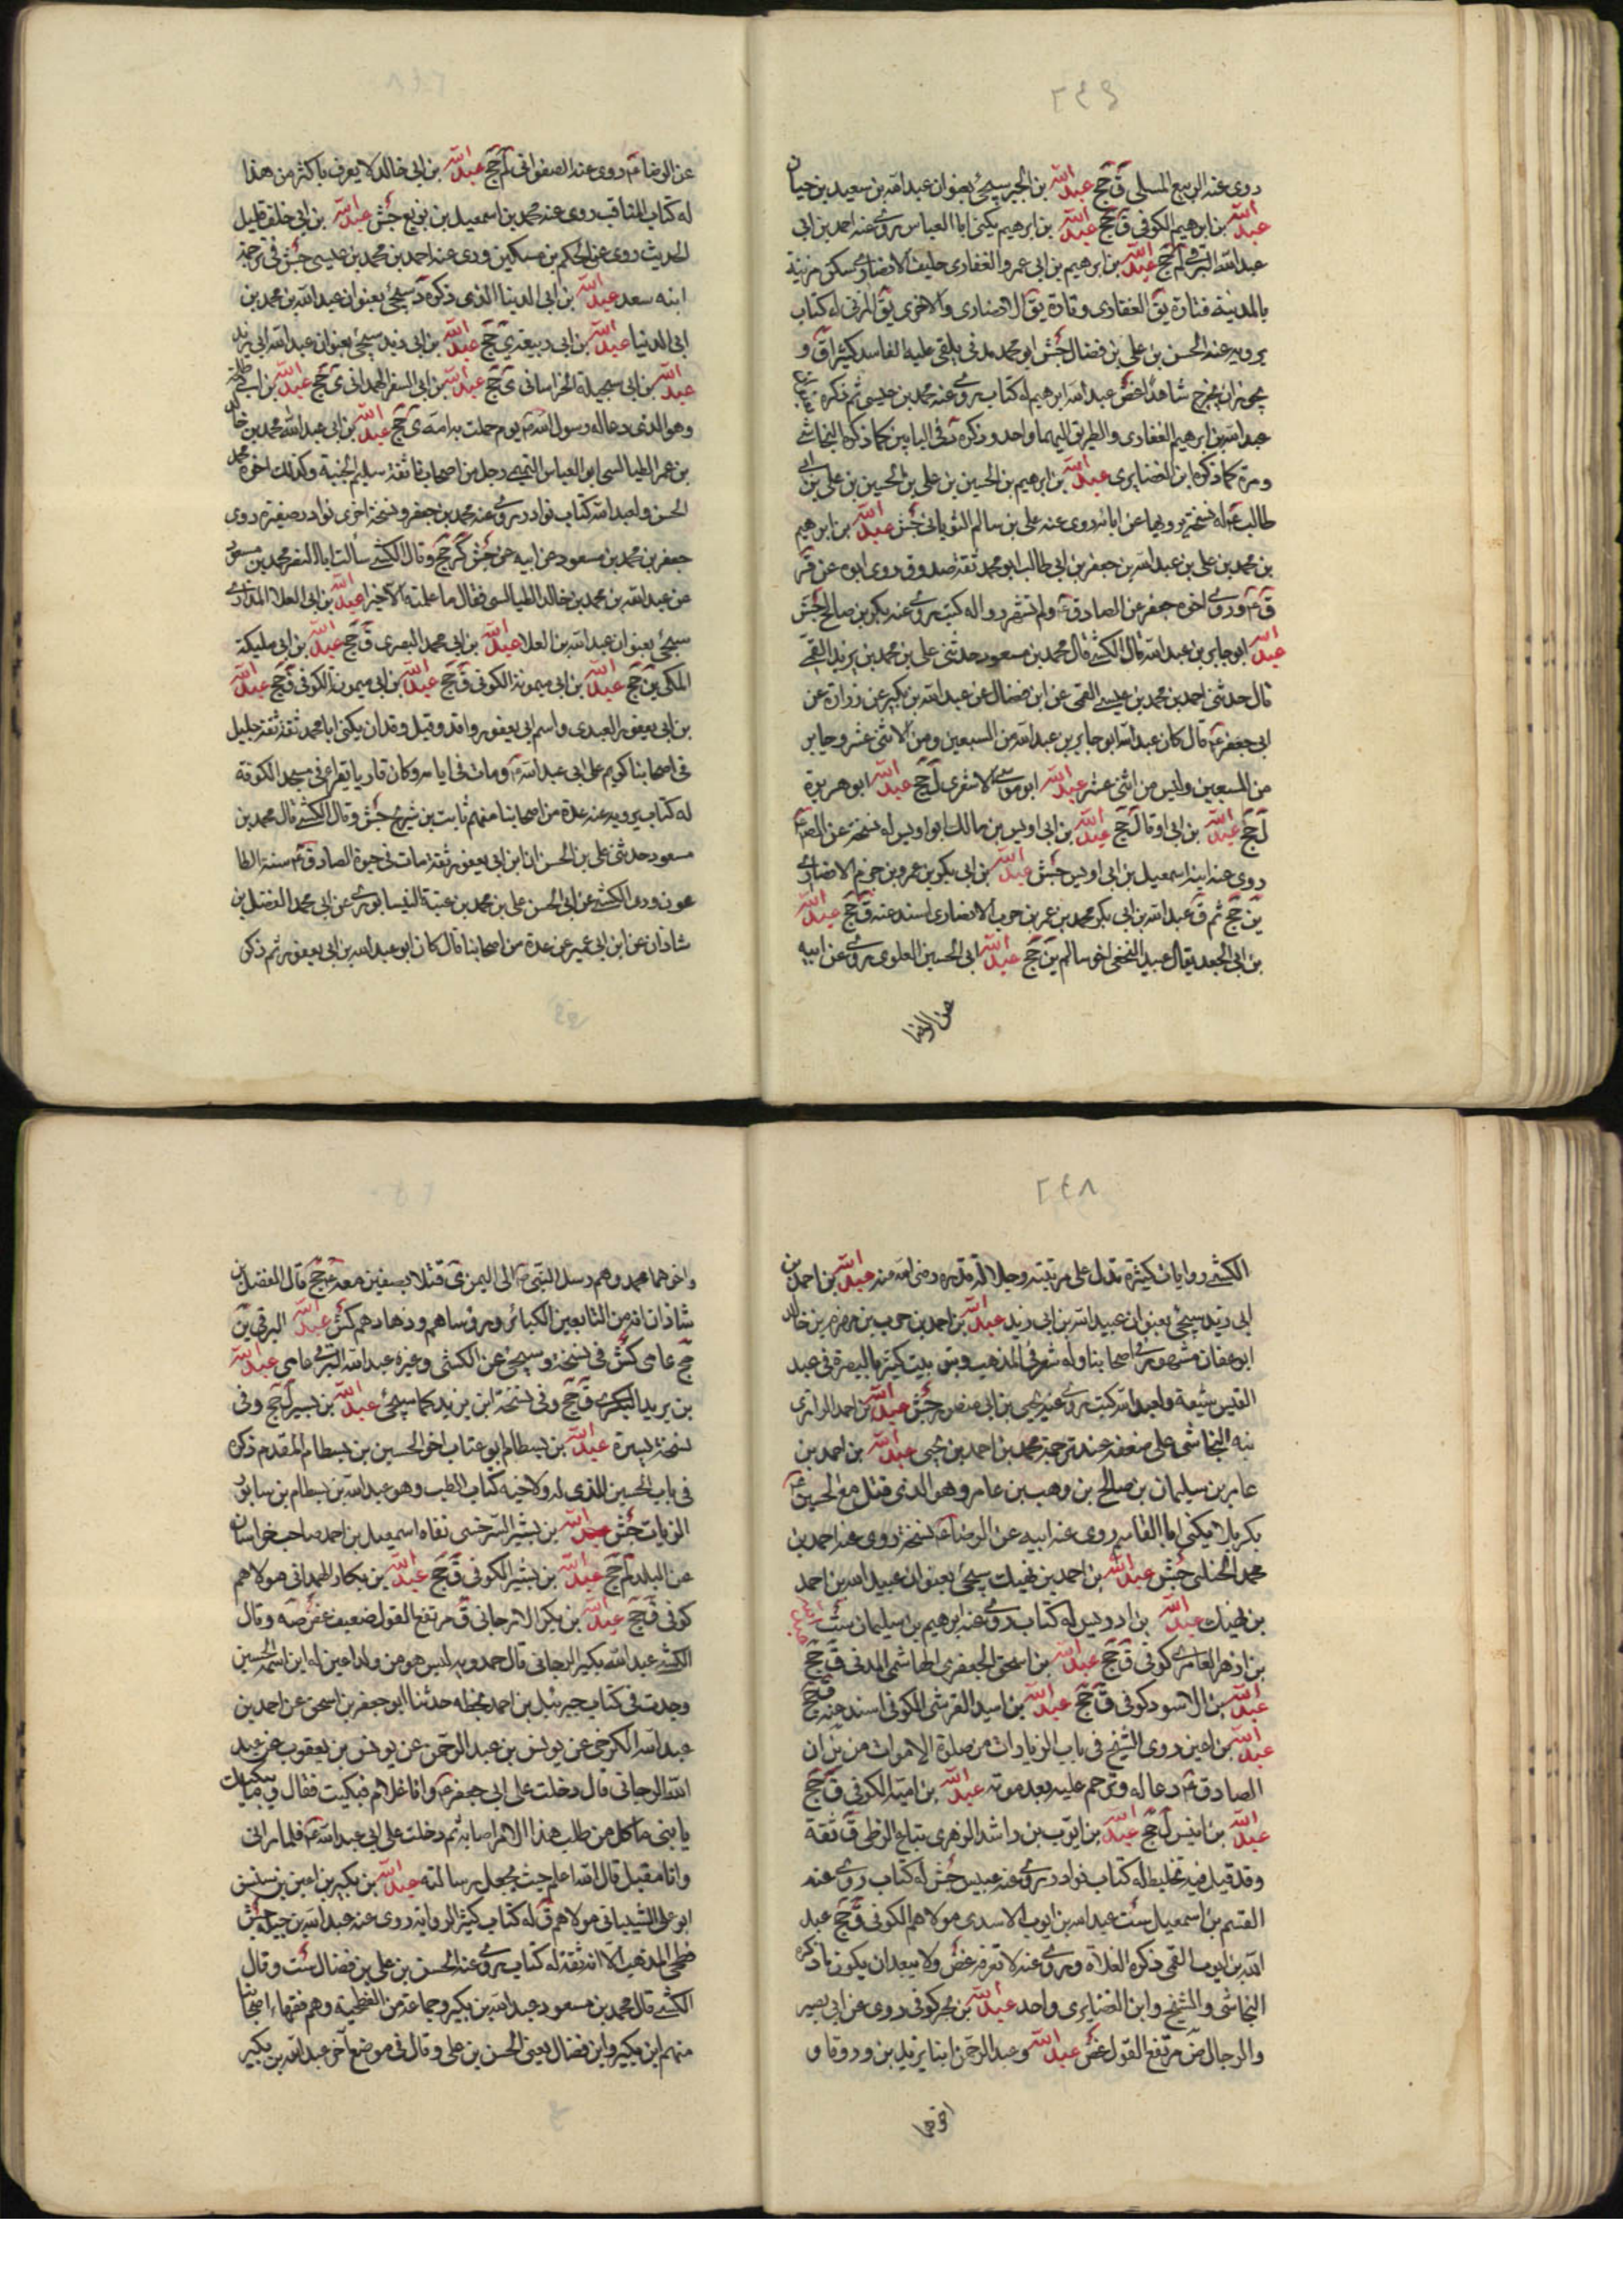 ٢٤٩
روى عنه الربيع المسلى ق جج عبد الله بن الجبر سيجئ بعنوان عبد الله بن سعيد بن حيان
عبد الله بن ابرهيم الكوفى ق جج عبد الله بن ابرهيم يكنى ابا العباس روى عنه احمد بن ابى
عبد الله البرقى لم جج عبد الله بن ابرهيم بن ابى عمرو الغفارى حليف الانصار سكن مزينة
بالمدينة فتارة يق الغفارى وتارة يق الانصارى والاخرى يق المزنى له كتاب
يرويه عنه الحسن بن على بن فضال جش ابو محمد مدنى يلقى عليه الفاسد كثيرا ق و
يجوز ان يخرج شاهدا غض عبد الله ابرهيم له كتاب روى عنه محمد بن عيسى ثم ذكره
عبد الله بن ابرهيم الغفارى والطريق اليهما واحد وذكره فى البابين كما ذكره النجاشى
ومرة كما ذكره ابن الغضايرى عبد الله بن ابرهيم بن الحسين بن على بن الحسين بن على بن ابى
طالب ع له نسخة يرويها عن ابائه روى عنه على بن سالم التوبانى جش عبد الله بن ابرهيم
بن محمد بن على بن عبد الله بن جعفر بن ابى طالب ابو محمد ثقة صدوق روى ابوه عن قر
ق ع وروى اخوه جعفر عن الصادق ع ولم تشتهر رواله كتب روى عنه بكر بن صالح جش
عبد الله ابو جابر بن عبد الله قال الكشى قال محمد بن مسعود حدثنى على بن محمد بن يزيد القمى
قال حدثنى احمد بن محمد بن عيسى القمى عن ابن فضال عن عبد الله بن بكير عن زرارة عن
ابى جعفر ع قال كان عبد الله ابو جابر بن عبد الله من السبعين ومن الاثنى عشر وجابر
من السبعين وليس من اثنى عشر عبد الله ابو موسى الاشعرى ل جج عبد الله ابو هريرة
ل جج عبد الله بن ابى اوفا ل جج عبد الله بن ابى اويس بن مالك ابو اويس له نسخة عن الصادق ع
روى عنه ابنه اسمعيل بن ابى اويس جش عبد الله بن ابى بكر بن عمرو بن حزم الانصارى
ين جج ثم ق عبد الله بن ابى بكر محمد بن عمر بن حرب الانصارى اسند عنه ق جج عبد الله
بن ابى الجعد يقال عبيد النخعى اخو سالم ين جج عبد الله ابى الحسين العلوى روى عن ابيه
عن الرضا
عن الرضا ع روى عنه الصفوانى لم جج عبد الله بن ابى خالد لا يعرف باكثر من هذا
له كتاب المناقب روى عنه محمد بن اسمعيل بن بزيع جش عبد الله بن ابى خلف قليل
الحديث روى عن الحكم بن مسكين وروى عنه احمد بن محمد بن عيسى جش فى ترجمة
ابنه سعد عبد الله بن ابى الدنيا الذى ذكره د سيجئ بعنوان عبد الله بن محمد بن
ابى الدنيا عبد الله بن ابى ربيعة ى جج عبد الله بن ابى زيد سيجئ بعنوان عبد الله ابى زيد
عبد الله بن ابى سجيلة الخراسانى ى جج عبد الله بن ابى السفر الهمدانى ى جج عبد الله بن ابى طلحة
وهو الذى دعا له رسول الله ص يوم حملت به امه ى جج عبد الله بن ابى عبد الله محمد بن خالد
بن عمر الطيالسى ابو العباس التميمى رجل من اصحابنا ثقة سليم الجنبة وكذلك اخوه محمد
الحسن ولعبد الله كتاب نوادر روى عنه محمد بن جعفر ونسخة اخرى نوادر صغيرة روى
جعفر بن محمد بن مسعود عن ابيه عن جش كر جج وقال الكشى سألت ابا النضر محمد بن مسعود
عن عبد الله بن محمد بن خالد الطيالسى فقال ما علمته الا خيرا عبد الله بن ابى العلا المذارى
سيجئ بعنوان عبد الله بن العلا عبد الله بن ابى محمد البصرى ق جج عبد الله بن ابى مليكة
المكى ين جج عبد الله بن ابى ميمونة الكوفى ق جج عبد الله بن ابى ميمونة الكوفى ق جج عبد الله
بن ابى يعفور العبدى واسم ابى يعفور واقد وقيل وقدان يكنى ابا محمد ثقة ثقة جليل
فى اصحابنا كريم على ابى عبد الله ع ومات فى ايامه وكان قاريا يقرا فى مسجد الكوفة
له كتاب يرويه عنه عدة من اصحابنا منهم ثابت بن شريح جش وقال الكشى قال محمد بن
مسعود حدثنى على بن الحسن ان ابن ابى يعفور ثقة مات فى حيوة الصادق ع سنة الطا
عون وروى الكشى عن ابى الحسن على بن محمد بن قتيبة النيسابورى عن ابى محمد الفضل بن
شاذان عن ابن ابى عمير عن عدة من اصحابنا قال كان ابو عبد الله بن ابى يعفور ثم ذكر
٢٤٨
الكشى روايات كثيرة تدل على مرتبته وجلالة قدره رضى الله عنه عبد الله بن احمد بن
ابى زيد سيجئ بعنوان عبيد الله بن ابى زيد عبد الله بن احمد بن حرب بن مهزم بن خالد
ابو هفان مشهور فى اصحابنا وله شعر فى المذهب وبنو مهزم بيت كبير بالبصرة فى عبد
القيس شيعة ولعبد الله كتب روى عنه يحيى بن ابى منصور جش عبد الله بن احمد الرازى
نبه النجاشى على ضعفه عند ترجمة محمد بن احمد بن يحيى عبد الله بن احمد بن
عامر بن سليمان بن صالح بن وهب بن عامر وهو الذى قتل مع الحسين ع
بكربلا يكنى ابا القاسم روى عنه ابيه عن الرضا ع نسخة روى عنه احمد بن
محمد الجندى جش عبد الله بن احمد بن نهيك سيجئ بعنوان عبيد الله بن احمد
بن نهيك عبد الله بن ادريس له كتاب روى عنه ابرهيم بن سليمان ست
بن اذهر العامرى كوفى ق جج عبد الله بن اسحق الجعفرى الهاشمى المدنى ق جج
عبد الله بن الاسود كوفى ق جج عبد الله بن اسيد القرشى الكوفى اسند عنه ق جج
عبد الله بن اعين روى الشيخ فى باب الزيادات من صلوة الاموات من يب ان
الصادق ع دعا له وترحم عليه بعد موته عبد الله بن امية الكوفى ق جج
عبد الله بن انيس ل جج عبد الله بن ايوب بن راشد الزهرى بياع الزطى ق ثقة
وقد قيل فيه تخليط له كتاب نوادر روى عنه عبيس جش له كتاب روى عنه
القسم بن اسمعيل ست عبد الله بن ايوب الاسدى مولاهم الكوفى ق جج عبد
الله بن ايوب القمى ذكره الغلاة وروى عنه لا تعرفه غض ولا يبعد ان يكون ما ذكره
النجاشى والشيخ وابن الغضايرى واحد عبد الله بن بحر كوفى روى عن ابى بصير
والرجال ض مرتفع القول غض عبد الله وعبد الرحمن ابنا بديل بن ورقا و
اخوهما
واخوهما محمد وهم رسل النبى ص الى اليمن ى قتلا بصفين معه ع جج قال الفضل بن
شاذان انه من التابعين الكبار ورؤساهم وزهادهم كش عبد الله البرقى ين
جج عامى كش فى نسخة وسيجئ عن الكشى وغيره عبد الله البرقى عامى عبد الله
بن بريد البكرى ق جج وفى نسخة ابن يزيد كما سيجئ عبد الله بن بسر ل جج وفى
نسخة بسرة عبد الله بن بسطام ابو عتاب اخو الحسين بن بسطام المقدم ذكره
فى باب الحسين الذى له ولاخيه كتاب الطب وهو عبد الله بن بسطام بن سابور
الزيات جش عبد الله بن بشر السرخسى نفاه اسمعيل بن احمد صاحب خراسان
عن البلد لم جج عبد الله بن بشير الكوفى ق جج عبد الله بن بكار الهمدانى مولاهم
كوفى ق جج عبد الله بن بكر الارجانى ق مرتفع القول ضعيف غض صه وقال
الكشى عبد الله بكير الرجانى قال حمدويه ليس هو من ولد اعين له ابن اسمه الحسين
وجدت فى كتاب جبرئيل بن احمد بخطه حدثنا ابو جعفر بن اسحق عن احمد بن
عبد الله الكرخى عن يونس بن عبد الرحمن عن يونس بن يعقوب عن عبد
الله الرجانى قال دخلت على ابى جعفر ع وانا غلام فبكيت فقال وما يبكيك
يا بنى ما كل من طلب هذا الامر اصابه ثم دخلت على ابى عبد الله ع فلما رانى
وانا مقبل قال الله اعلم حيث يجعل رسالته عبد الله بن بكير بن اعين بن سنسن
ابو على الشيبانى مولاهم ق له كتاب كثير الرواية روى عنه عبد الله بن جبلة جش
فطحى المذهب الا انه ثقة له كتاب روى عنه الحسن بن على بن فضال ست وقال
الكشى قال محمد بن مسعود عبد الله بن بكير وجماعة من الفطحية وهم فقهاء اصحابنا
منهم ابن بكير وابن فضال يعنى الحسن بن على وقال فى موضع آخر عبد الله بن بكير